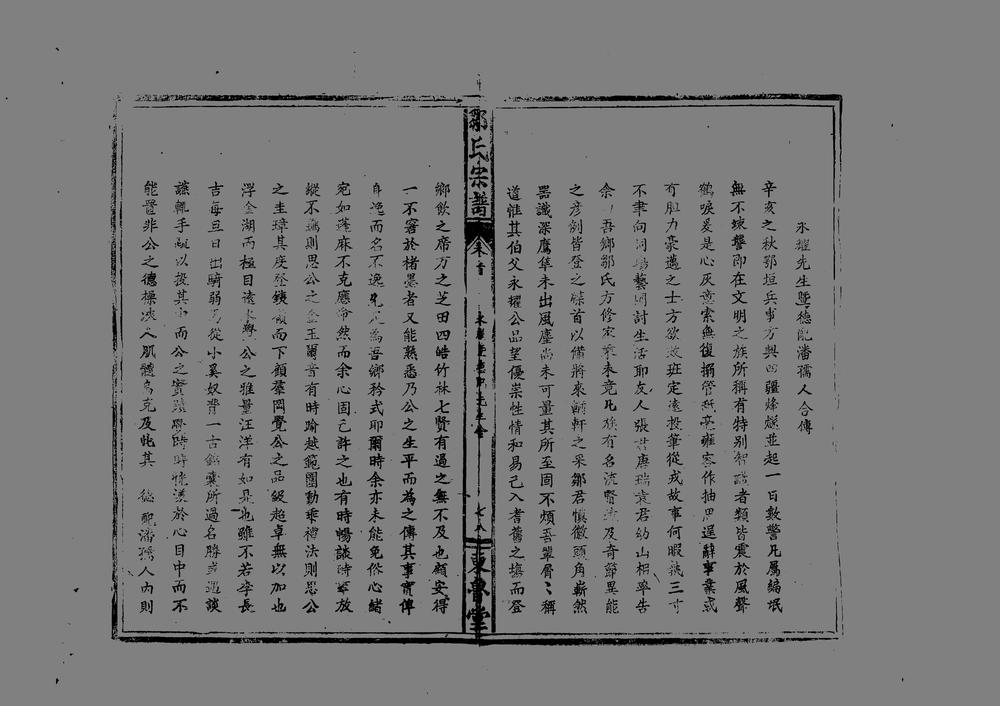 永耀先生暨德配潘孺人合傳
辛亥之秋鄂垣兵事方興四疆烽燧並起一日數警凡屬編氓
無不竦讋即在文明之族所稱有特別智識者類皆震於風聲
鶴唳爰是心灰意索無復搦管紙毫雍容作抽思逞辭事業或
有胆力豪邁之士方欲效班定遠投筆從戎故事何暇藉三寸
不聿向詞場藝圃討生活耶友人張君唐瑞袁君幼山相率告
余以吾鄉鄒氏方修家乘未竟凡族有名流賢達及奇節異能
之彥例皆登之牒首以備將來輶軒之采鄒君慎徽頭角嶄然
器識深鷹隼未出風塵尚未可量其所至固不煩吾輩屑屑稱
道惟其伯父永耀公品望優崇性情和易已入耆舊之壤而登
鄒氏宗譜
卷首
東魯堂
鄉飲之席方之芝田四皓竹林七賢有過之無不及也顧安得
一不窘於楮墨者又能熟悉乃公之生平而為之傳其事實俾
身逸而名不逸先足為吾鄉矜式耶爾時余亦未能免俗心緒
宛如蓬麻不克應命然而余心固已許之也有時暢談時事放
縱不羈則思公之金玉爾音有時踰越範圍動乖禮法則思公
之圭璋其度登鐵嶺而下顧羣岡覺公之品級超卓無以加也
浮金湖而極目遠水與公之雅量汪洋有如是也雖不若李長
吉每旦日出騎弱馬從小奚奴背一古錦囊所過名勝方遇談
讌輒手疏以投其中而公之實蹟嘗時時懷漾於心目中而不
能置非公之德操浹人肌體烏克及此其　德配潘孺人內則